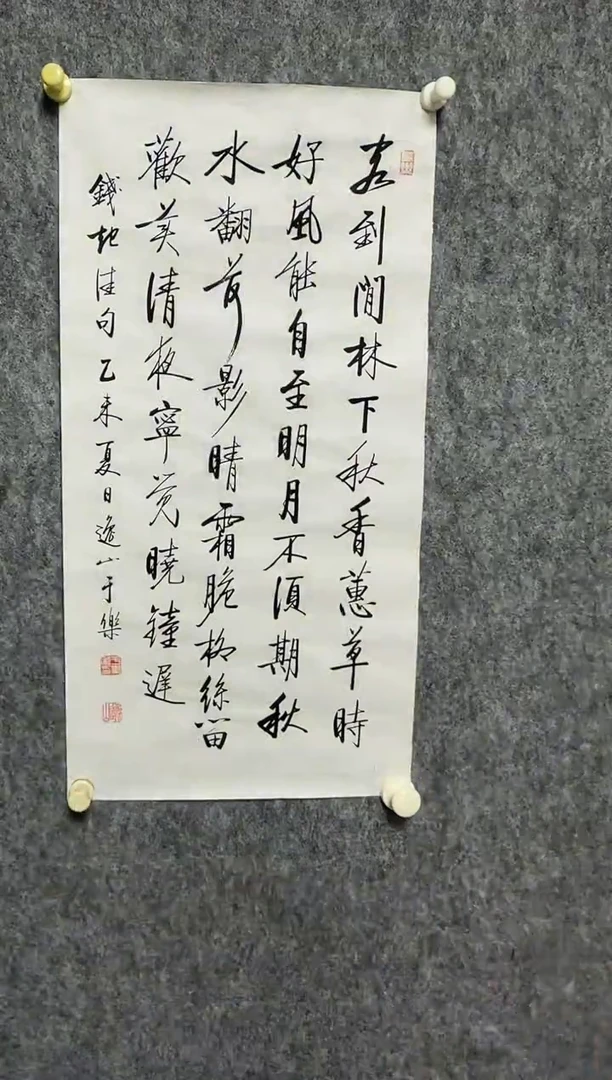 客到閒林下秋香蕙草時
好風能自至明月不須期秋
水翻荷影晴霜脆柳絲留
歡美清夜寧覺曉鐘遲
錢起佳句乙未夏日逸山于樂